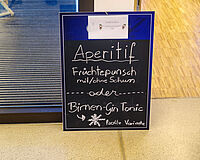 Aperitif
Früchtepunsch
mit/ohne Schuss
oder
Birnen-Gin Tonic